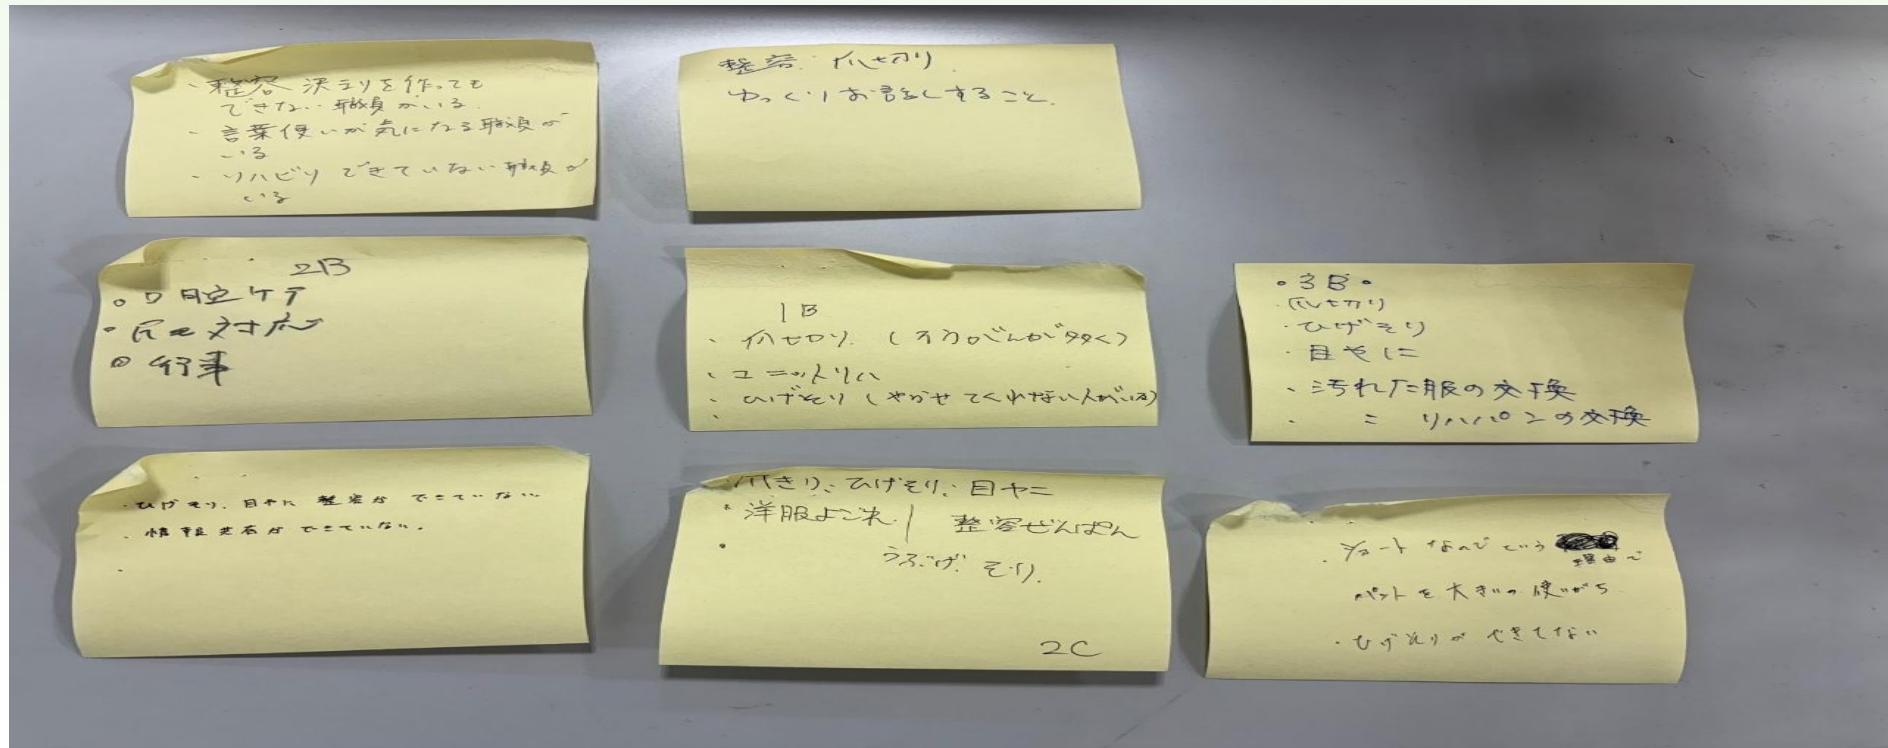 ・整容 決まりを作っても
できない職員がいる
・言葉使いが気になる職員が
いる
・リハビリできていない職員が
いる
整容 爪切り
ゆっくりお話しすること。
2B
・口腔ケア
・尿モ対応
・行事
1B
・爪切り (まきづめが多く)
・ユニットリハ
・ひげそり (やらせてくれない人がいる)
・3B・
・爪切り
・ひげそり
・目やに
・汚れた服の交換
・〃 リハパンの交換
・ひげそり、目やに 整容ができていない
・情報共有ができていない。
・爪きり、ひげそり、目ヤニ
・洋服よごれ / 整容ぜんぱん
うぶげ そり
2C
・ショートなのでという理由で
パットを大きいの使いがち
・ひげそりができてない